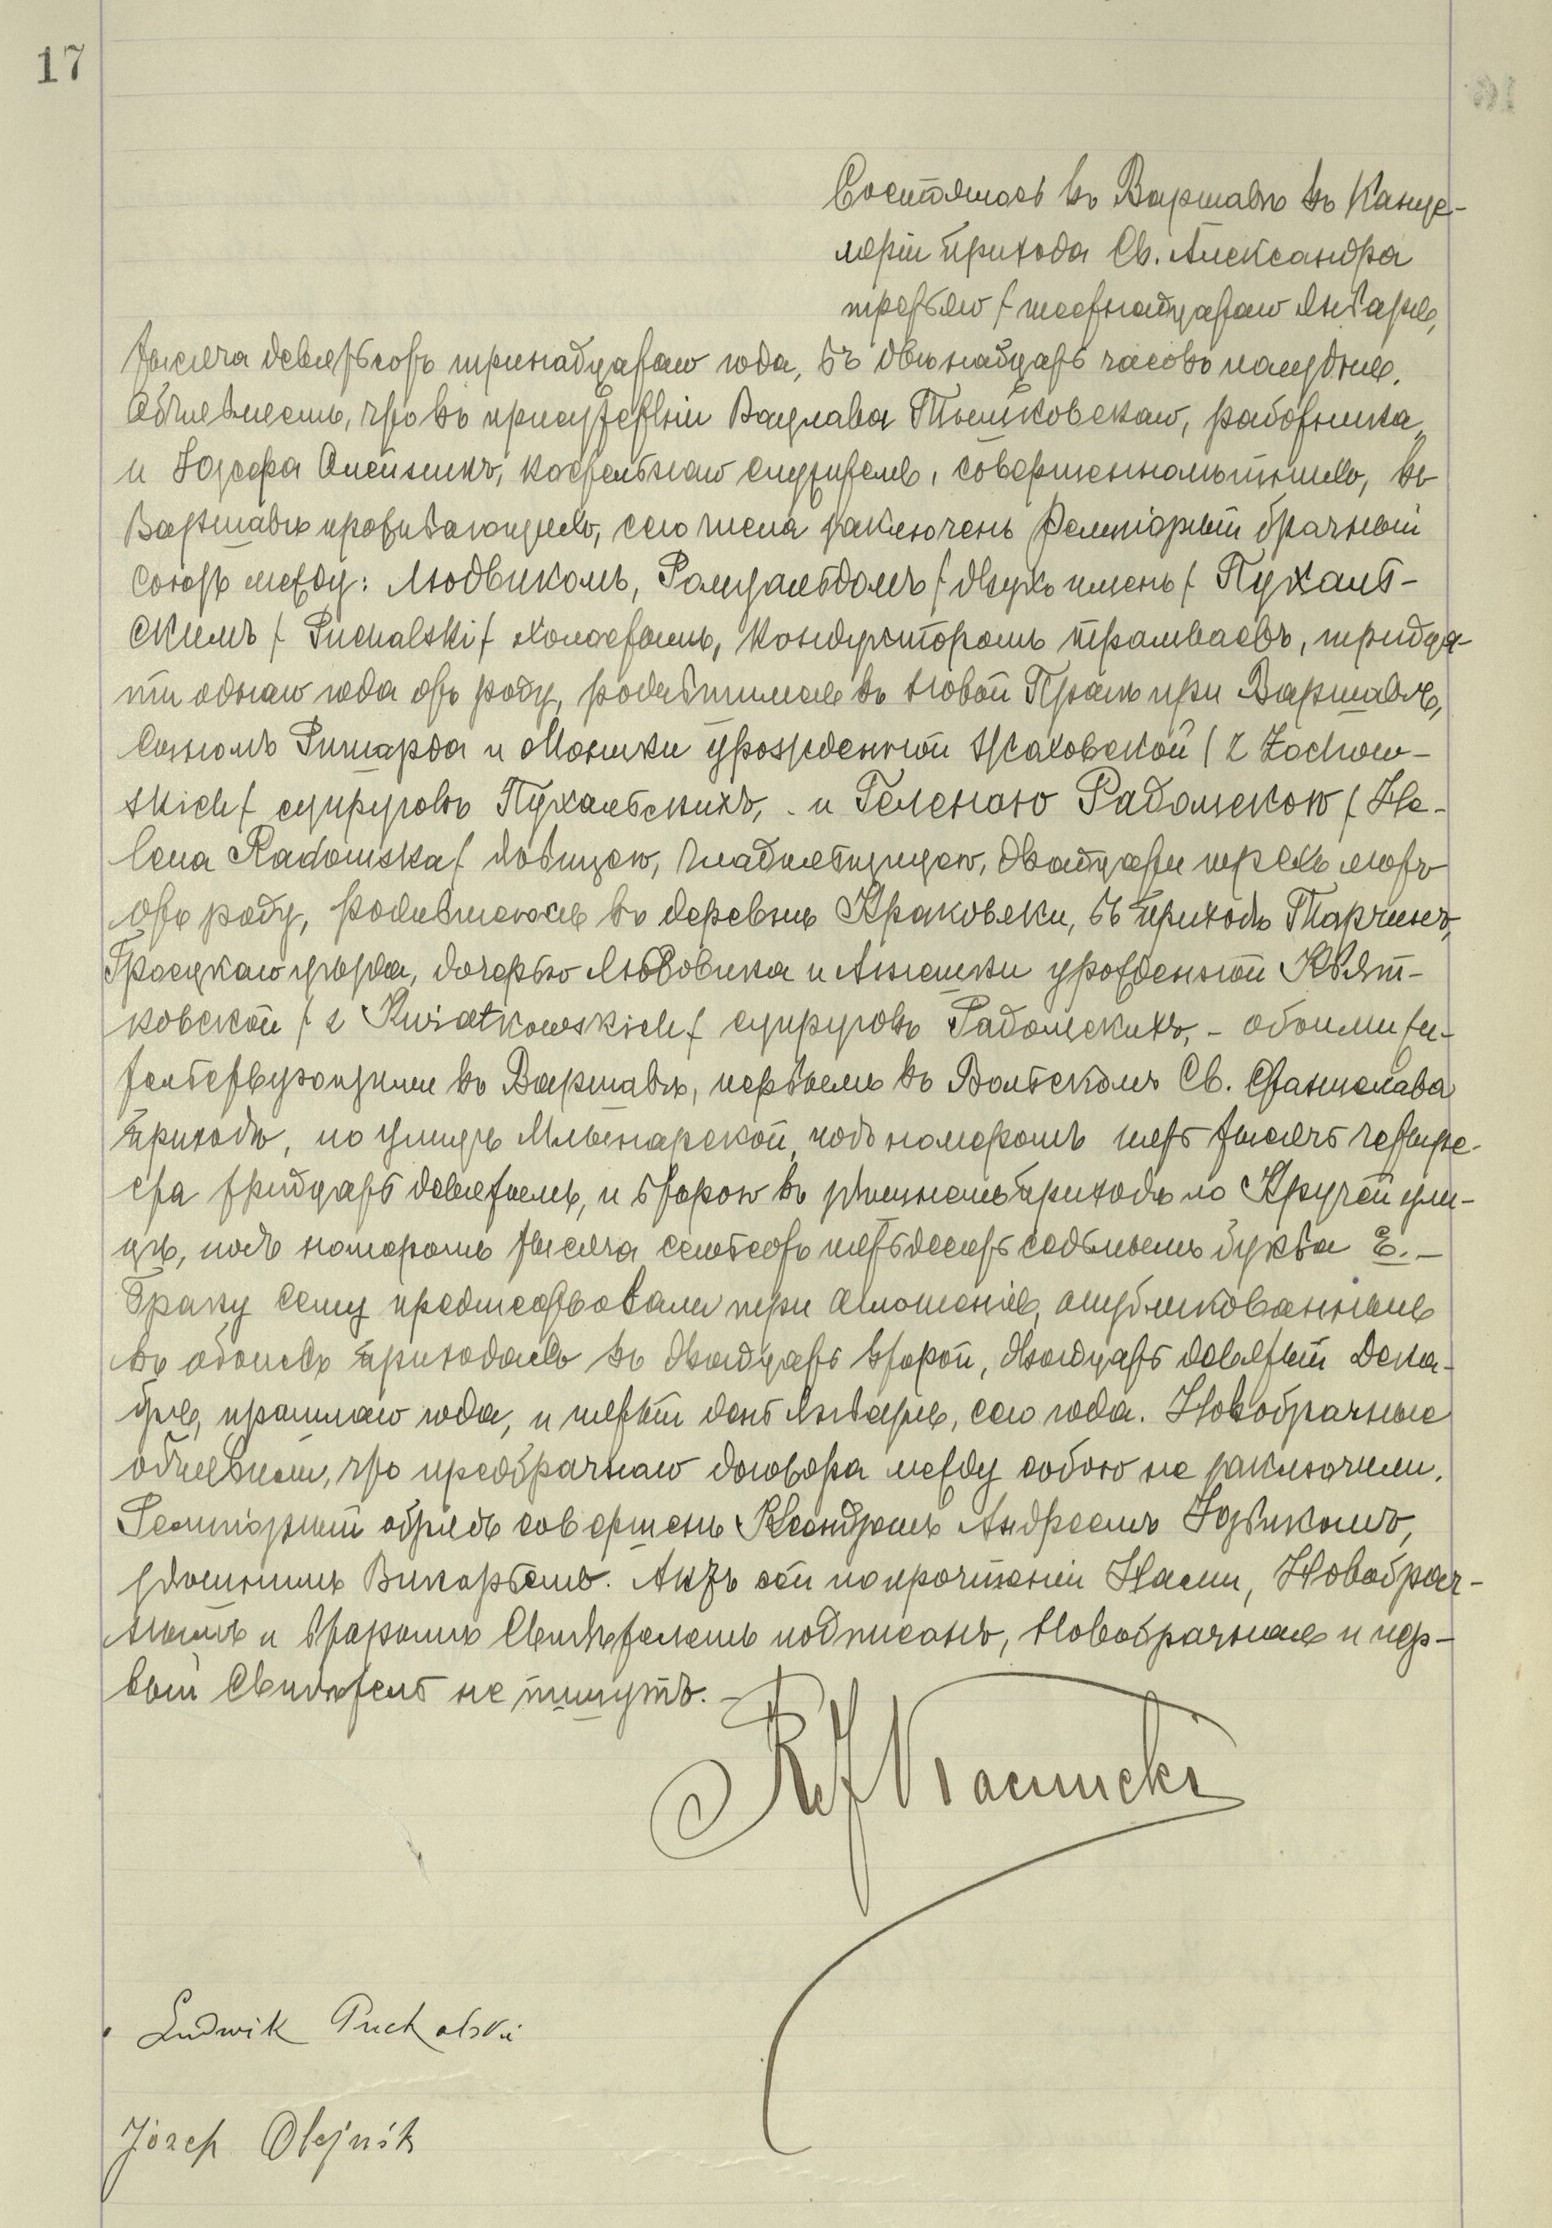 17
Состоялось въ Варшавѣ въ Канце-
леріи прихода Св. Александра
третьяго / шестнадцатаго Января,
тысяча девятьсотъ тринадцатаго года, въ двѣнадцать часовъ полудня.
Объявляемъ, что въ присутствіи Вацлава Тышковскаго, работника,
и Іозефа Олейникъ, костельнаго служителя, совершеннолѣтнихъ, въ
Варшавѣ проживающихъ, сего числа заключенъ религіозный брачный
союзъ между: Людвикомъ, Ромуальдомъ / двухъ именъ / Пухаль-
скимъ / Puchalski / холостымъ, кондукторомъ трамваевъ, тридца-
ти одного года отъ роду, родившимся въ Новой Прагѣ при Варшавѣ,
сыномъ Рышарда и Моники урожденной Жаховской / z Żochow-
skich / супруговъ Пухальскихъ, - и Геленою Радомскою / He-
lena Radomska / дѣвицею, гладильщицею, двадцати трехъ лѣтъ
отъ роду, родившеюся въ деревнѣ Краковяки, въ приходѣ Тарчинъ,
Гроецкаго уѣзда, дочерью Людовика и Агнешки урожденной Квят-
ковской / z Kwiatkowskich / супруговъ Радомскихъ, - обоими жи-
тельствующими въ Варшавѣ, первымъ въ Вольскомъ Св. Станислава
приходѣ, по улицѣ Млынарской, подъ номеромъ шесть тысячъ четыре-
ста тридцать девятымъ, и второю въ здѣшнемъ приходѣ по Кручей ули-
цѣ, подъ номеромъ тысяча семьсотъ шестьдесятъ седьмымъ буква Е. -
Браку сему предшествовали три оглашенія, опубликованныя
въ обоихъ приходахъ въ двадцать второй, двадцать девятый Дека-
бря, прошлаго года, и шестый день Января, сего года. Новобрачные
объявили, что предбрачнаго договора между собою не заключили.
Религіозный обрядъ совершенъ Ксендзомъ Андреемъ Іозвикомъ,
здѣшнимъ Викаріемъ. Актъ сей по прочтеніи Нами, Новобрач-
нымъ и вторымъ Свидѣтелемъ подписанъ, Новобрачная и пер-
вый Свидѣтель не пишутъ. -
Ludwik Puchalski
Józef Olejnik